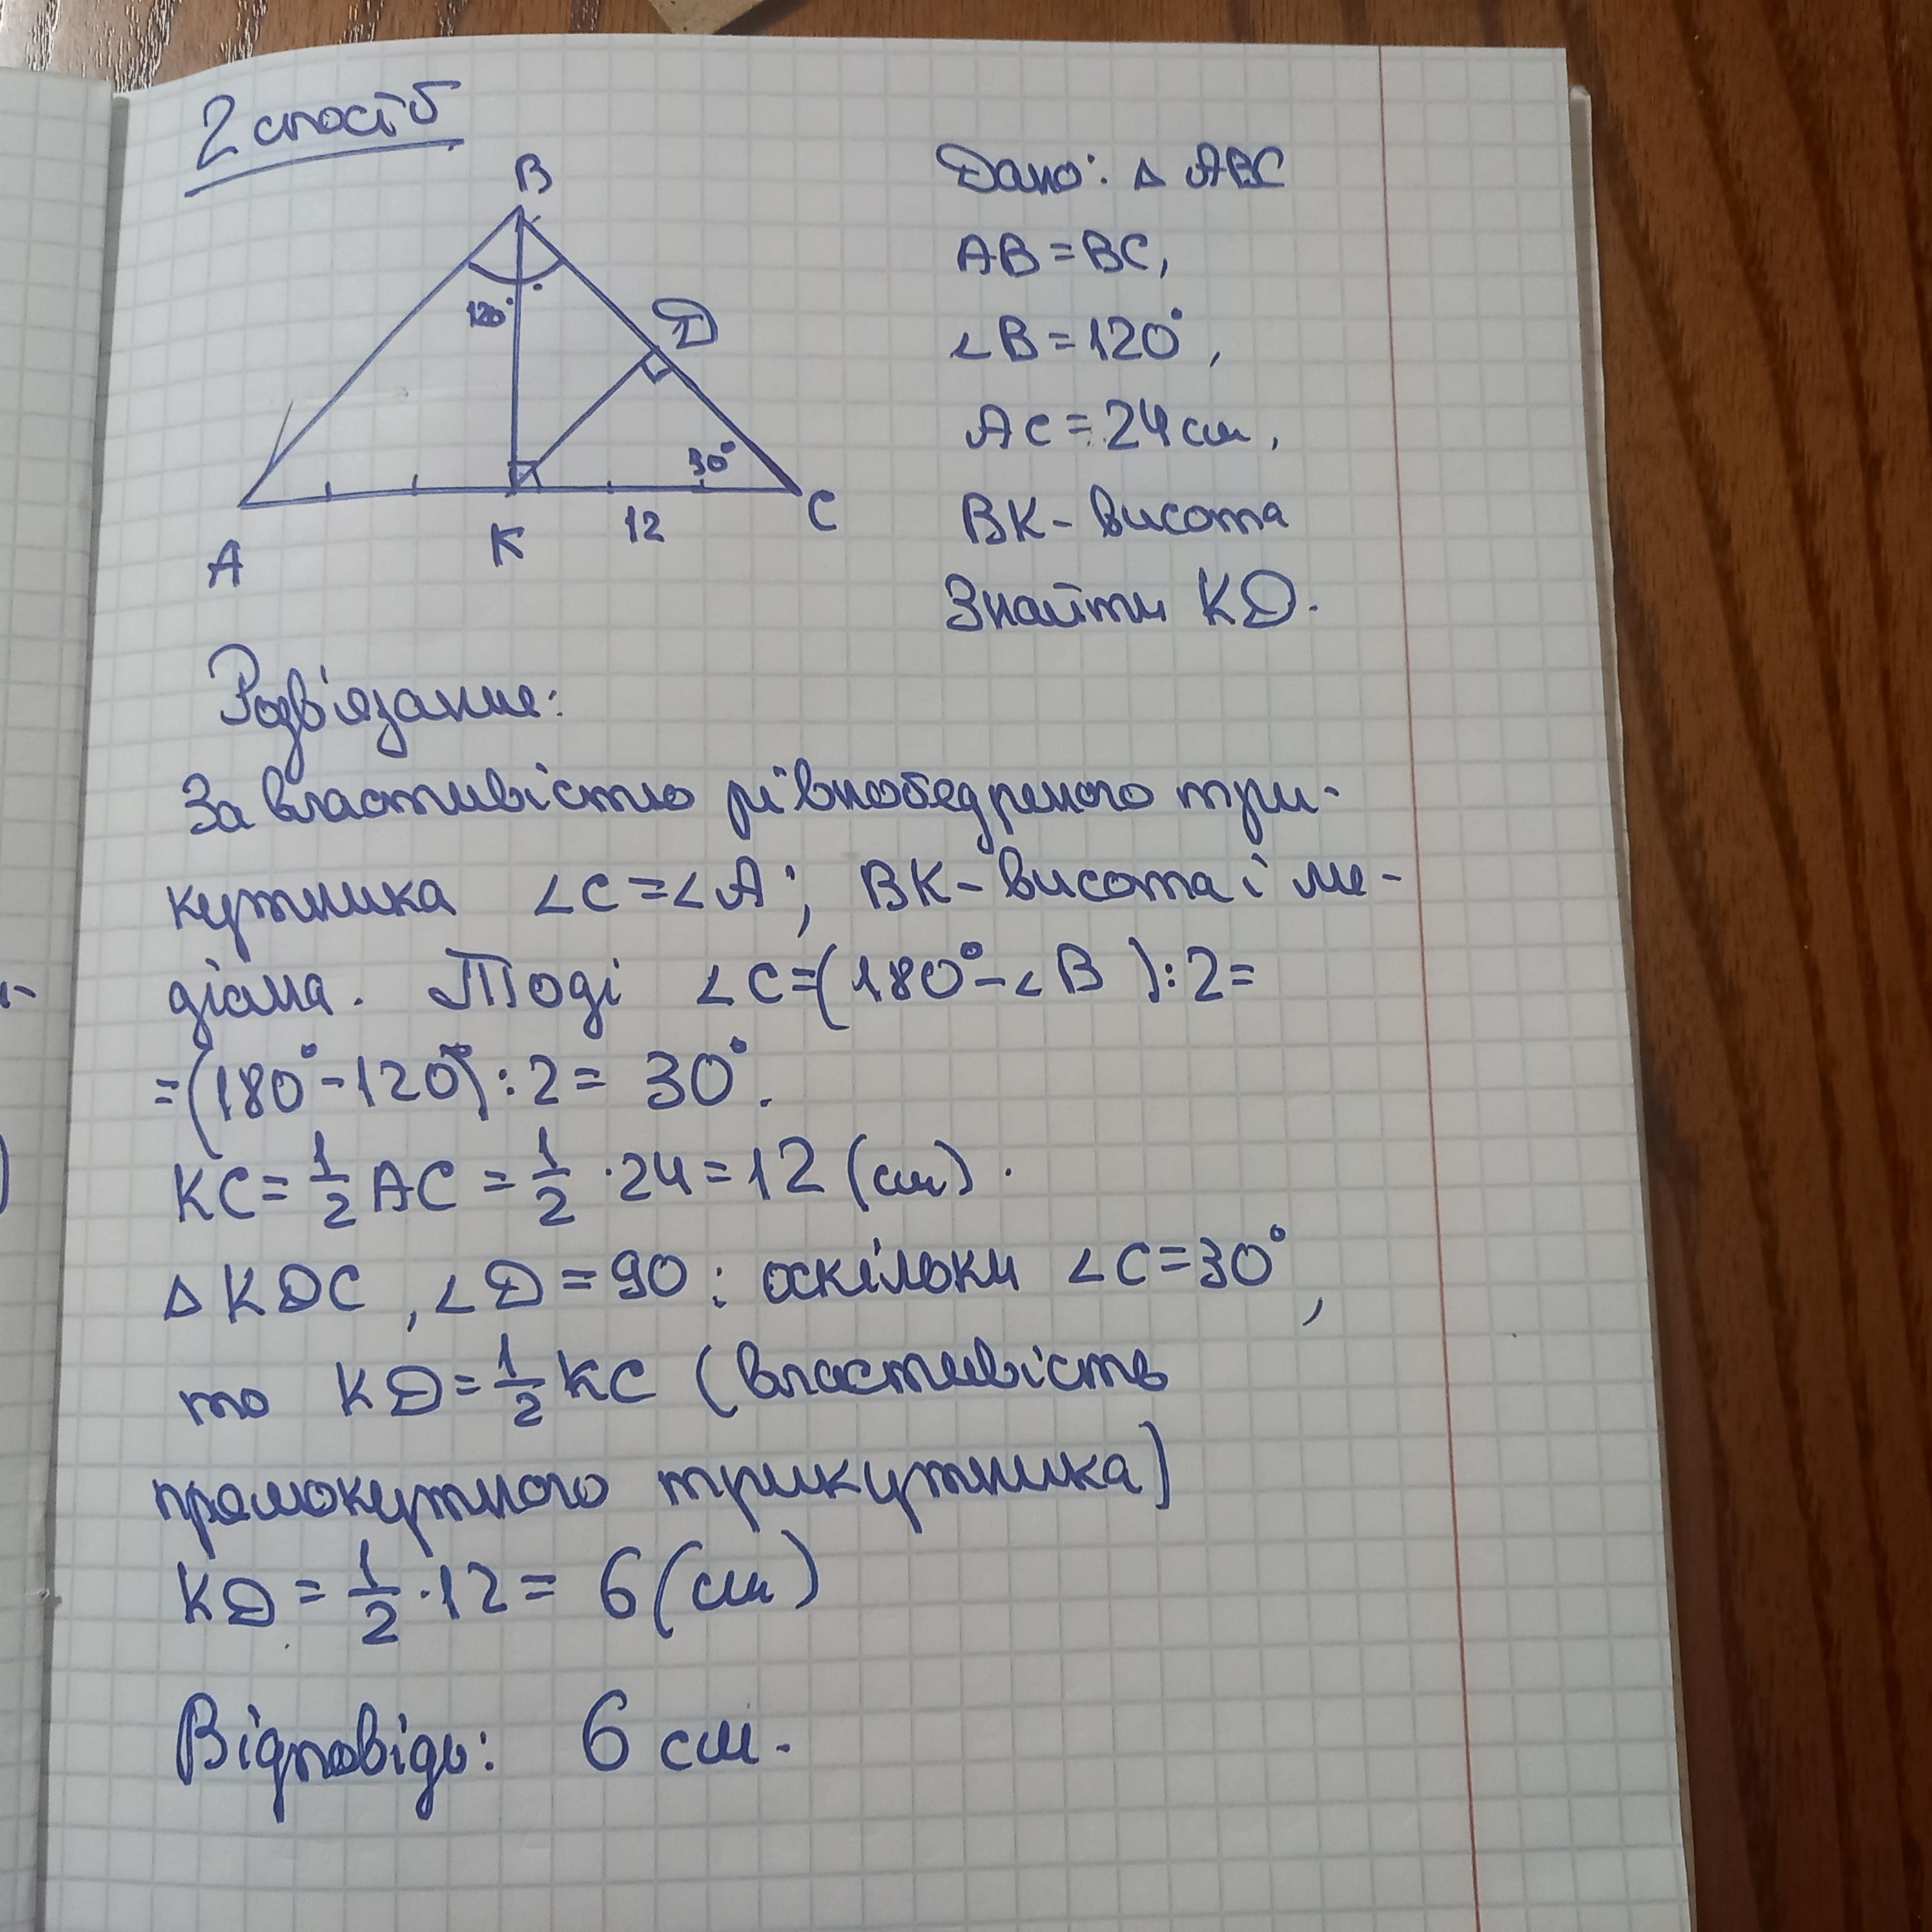 2 спосіб
B
120°
D
30°
A
K
12
C
Дано: △ ABC
AB = BC,
∠B = 120°,
AC = 24 см,
BK - висота
Знайти KD.
Розв'язання:
За властивістю рівнобедреного три-
кутника ∠C = ∠A; BK - висота і ме-
діана. Тоді ∠C = (180° - ∠B) : 2 =
= (180° - 120°) : 2 = 30°.
KC = 1/2 AC = 1/2 · 24 = 12 (см).
△ KDC, ∠D = 90 : оскільки ∠C = 30°,
то KD = 1/2 KC (властивість
прямокутного трикутника)
KD = 1/2 · 12 = 6 (см)
Відповідь: 6 см.